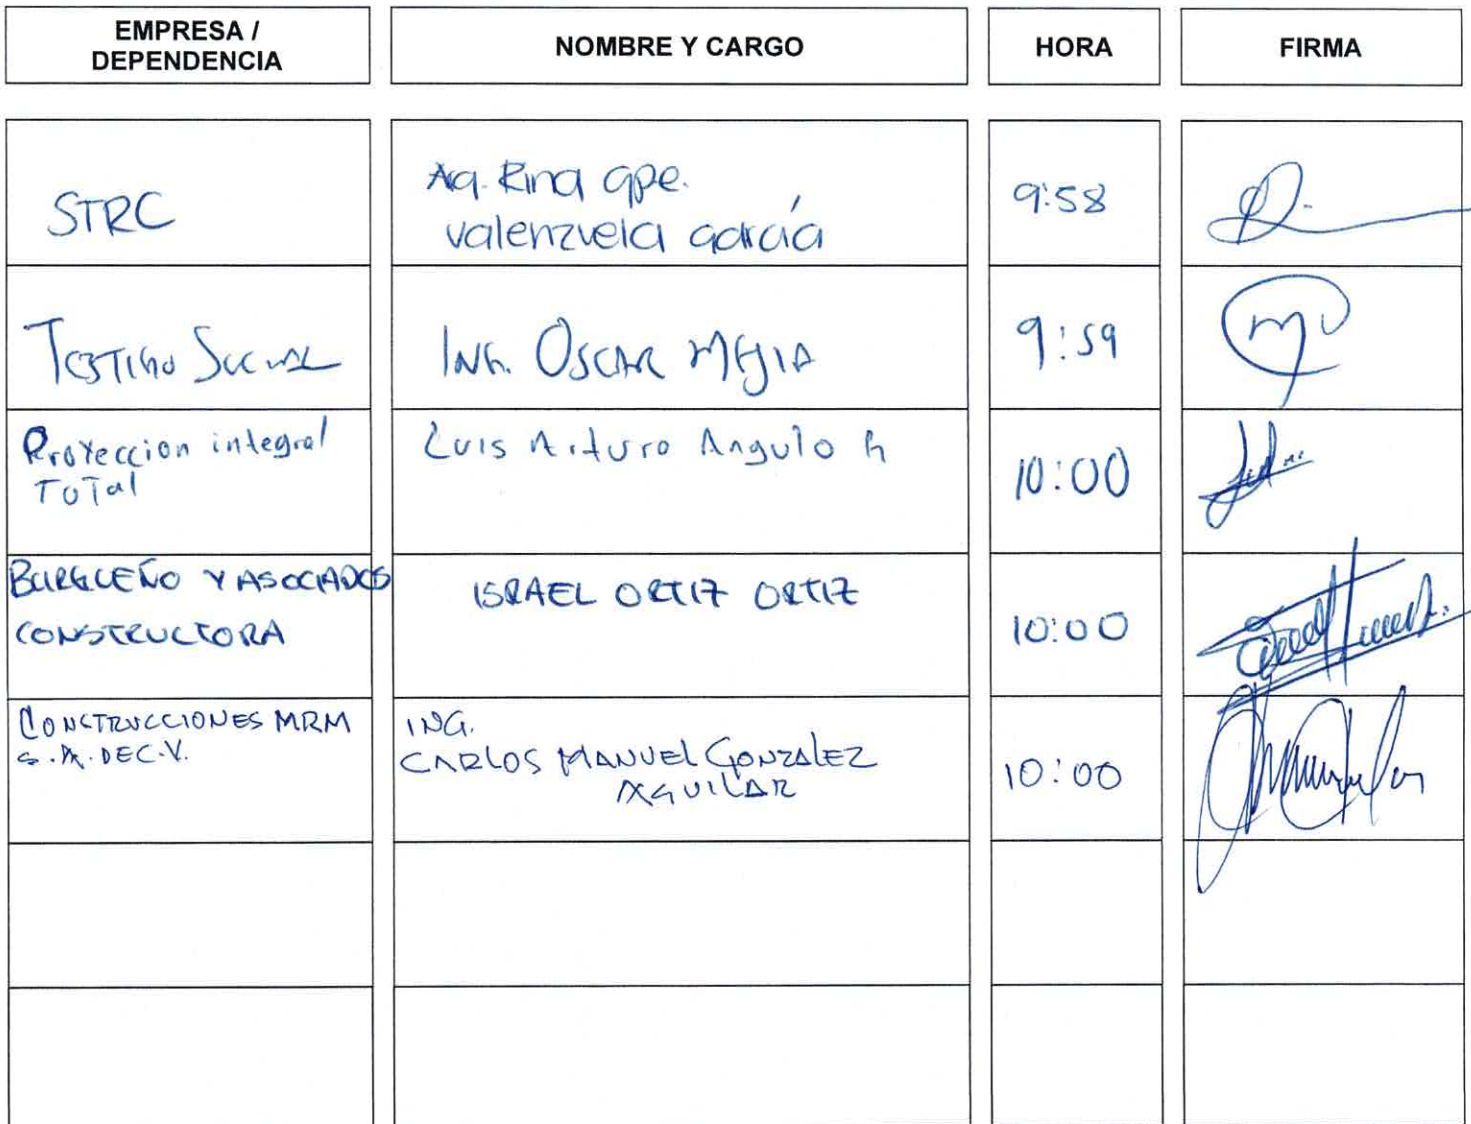 EMPRESA /
DEPENDENCIA
NOMBRE Y CARGO
HORA
FIRMA
STRC
Aq. Rina Gpe.
Valenzuela García
9:58
TESTIGO SOCIAL
ING. OSCAR MEJIA
9:59
Proyeccion integral
TOTal
Luis Arturo Angulo
10:00
BURGUEÑO Y ASOCIADOS
CONSTRUCTORA
ISRAEL ORTIZ ORTIZ
10:00
CONSTRUCCIONES MRM
S.A. DE C.V.
ING.
CARLOS MANUEL GONZALEZ
AGUILAR
10:00